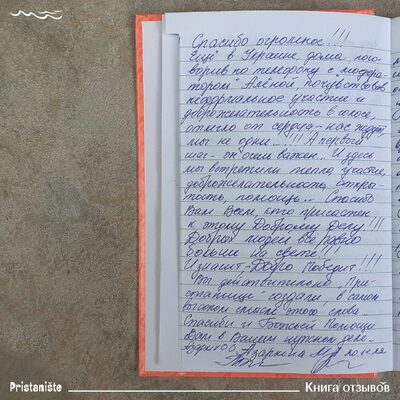 Спасибо огромное!!!
Ещё в Украине, дома, пого-
ворив по телефону с "модера-
тором" Алёной почувствовав
неформальное участие и
доброжелательность в голосе,
отлегло от сердца - нас ждут,
мы не одни...!!! А первый
шаг - он очень важен. И здесь
мы встретили тепло, участие,
доброжелательность, откры-
тость, помощь... Спасибо
Вам Всем, кто причастен
к этому Доброму Делу!!!
Добрых людей всё равно
больше на свете!!!
И значит - Добро Победит!!!
Вы действительно "При-
станище" создали, в самом
высоком смысле этого слова.
Спасибо и Божьей Помощи
Вам в Вашем нужном деле.
Азаркина
Pristanište
Книга отзывов